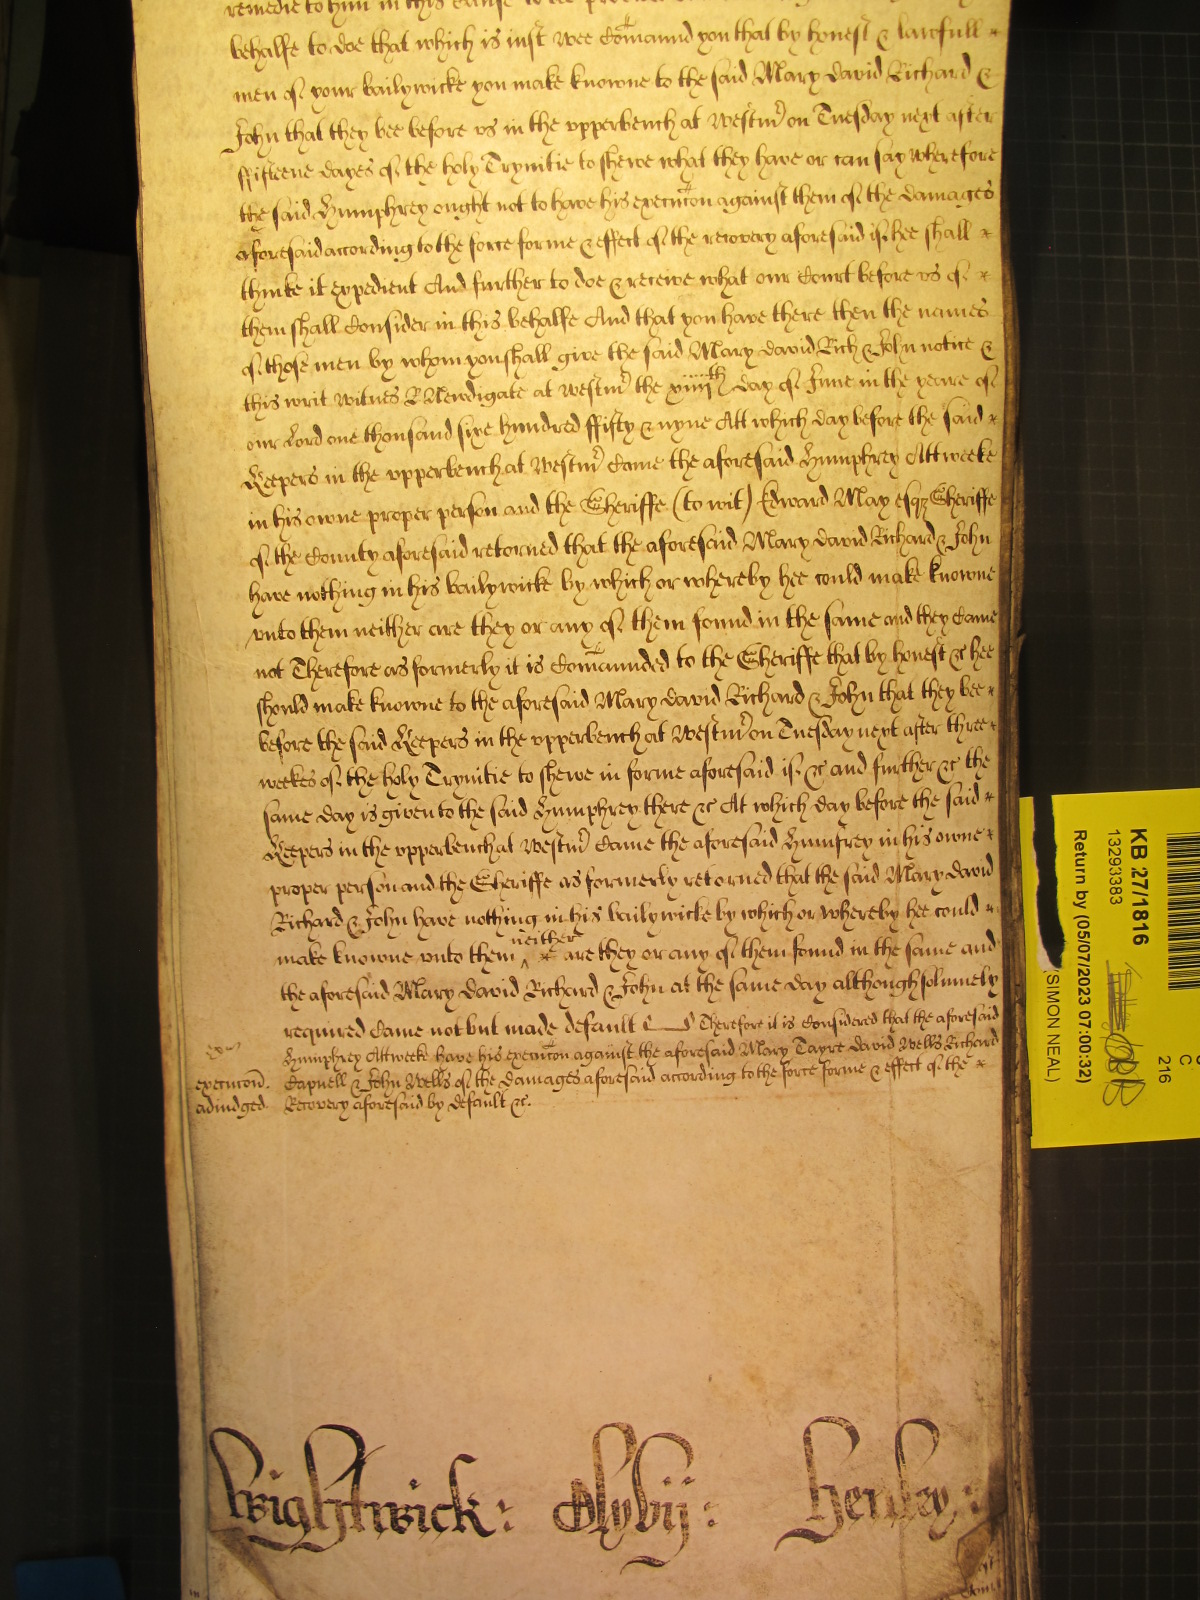 remedie to him in this
behalfe to doe that which is iust wee Comaund you that by honest & lawfull
men of your bailywicke you make knowne to the said Mary David Richard &
John that they bee before vs in the vpperbench at Westmr on Tuesday next after
ffifteene dayes of the holy Trynitie to shewe what they have or can say wherefore
the said Humphrey ought not to have his execucon against them of the damages
aforesaid according to the force forme & effect of the recovery aforesaid if hee shall
thinke it expedient And further to doe & receive what our Court before vs of
them shall Consider in this behalfe And that you have there then the names
of those men by whom you shall give the said Mary David Rich & John notice &
this writ Witnes R Newdigate at Westmr the xiiiith day of June in the yeare of
our Lord one thousand sixe hundred ffifty & nyne Att which day before the said
Keepers in the vpperbench at Westmr Came the aforesaid Humphrey Attweeke
in his owne proper person and the Sheriffe (to wit) Edward May esqr Sheriffe
of the County aforesaid retorned that the aforesaid Mary David Richard & John
have nothing in his bailywicke by which or whereby hee could make knowne
vnto them neither are they or any of them found in the same and they Came
not Therefore as formerly it is Comaunded to the Sheriffe that by honest &c hee
should make knowne to the aforesaid Mary David Richard & John that they bee
before the said Keepers in the vpperbench at Westmr on Tuesday next after three
weekes of the holy Trynitie to shewe in forme aforesaid if &c and further &c the
same day is given to the said Humphrey there &c At which day before the said
Keepers in the vpperbench at Westmr Came the aforesaid Humfrey in his owne
proper person and the Sheriffe as formerly retorned that the said Mary David
Richard & John have nothing in his bailywicke by which or whereby hee could
make knowne vnto them neither are they or any of them found in the same and
the aforesaid Mary David Richard & John at the same day although solumely
required Came not but made default Therefore it is Considered that the aforesaid
Humphrey Attweeke have his execucon against the aforesaid Mary Tayre David Wells Richard
Capnell & John Wells of the damages aforesaid according to the force forme & effect of the
Recovery aforesaid by default &c.
execucon
adiudged
Wightwick:
henley:
KB 27/1816
13293383
Return by (05/07/2023 07:00:32)
(SIMON NEAL)
C
216